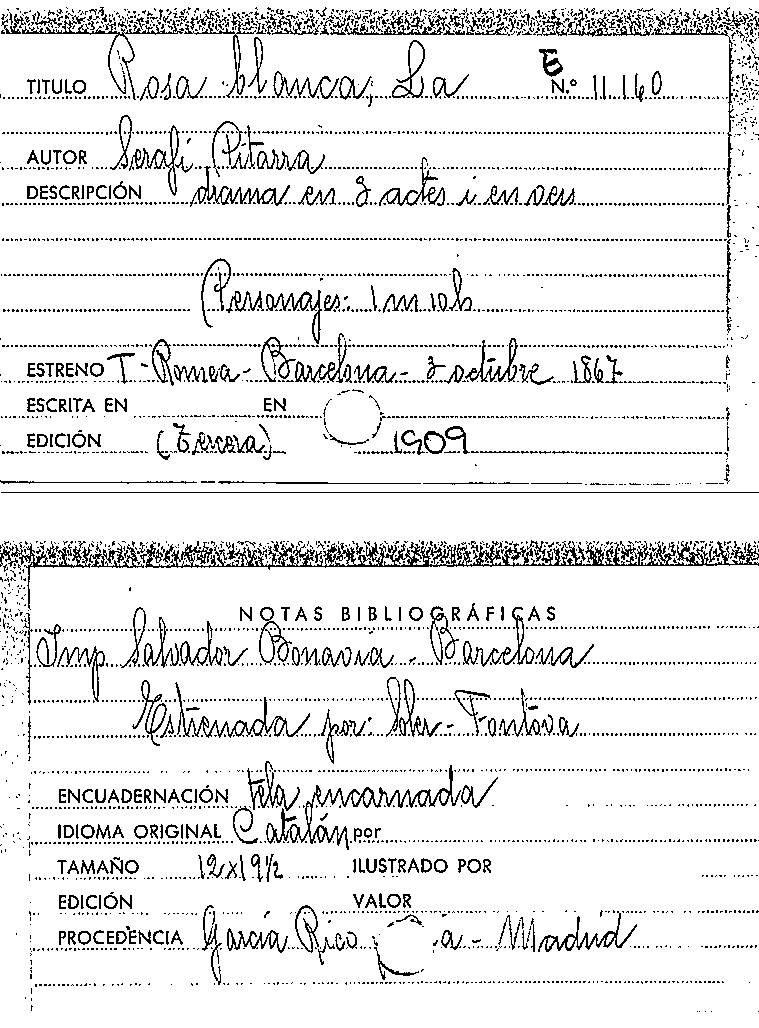 TITULO Rosa blanca, La N.º 11.160
E
AUTOR Serafí Pitarra
DESCRIPCIÓN drama en 3 actes i en vers
Personajes: 1 m 10 h
ESTRENO T- Romea - Barcelona - 3 octubre 1867
ESCRITA EN EN
EDICIÓN (Tercera) 1909
NOTAS BIBLIOGRÁFICAS
Imp Salvador Bonavia - Barcelona
Estrenada por: Soler - Fontova
ENCUADERNACIÓN tela encarnada
IDIOMA ORIGINAL Catalán por
TAMAÑO 12x19½ ILUSTRADO POR
EDICIÓN VALOR
PROCEDENCIA García Rico y a - Madrid